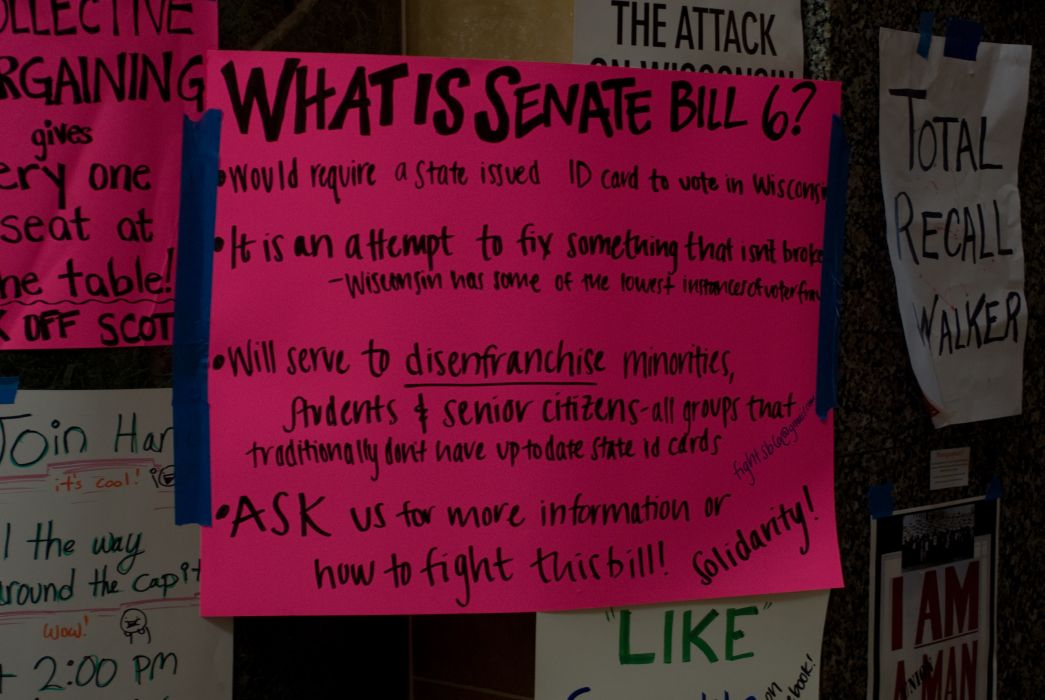 OLLECTIVE
RGAINING
gives
ery one
seat at
he table!
K OFF SCOT
WHAT IS SENATE BILL 6?
• Would require a state issued ID card to vote in Wiscons
• It is an attempt to fix something that isn't broke
- Wisconsin has some of the lowest instances of voter frau
• Will serve to disenfranchise minorities,
students & senior citizens - all groups that
traditionally don't have up to date state id cards
• ASK us for more information or
how to fight this bill!
Solidarity!
THE ATTACK
ON WISCONSIN
TOTAL
RECALL
WALKER
Join Har
it's cool!
l the way
round the capit
wow!
2:00 PM
"LIKE"
on
book!
I AM
A MAN